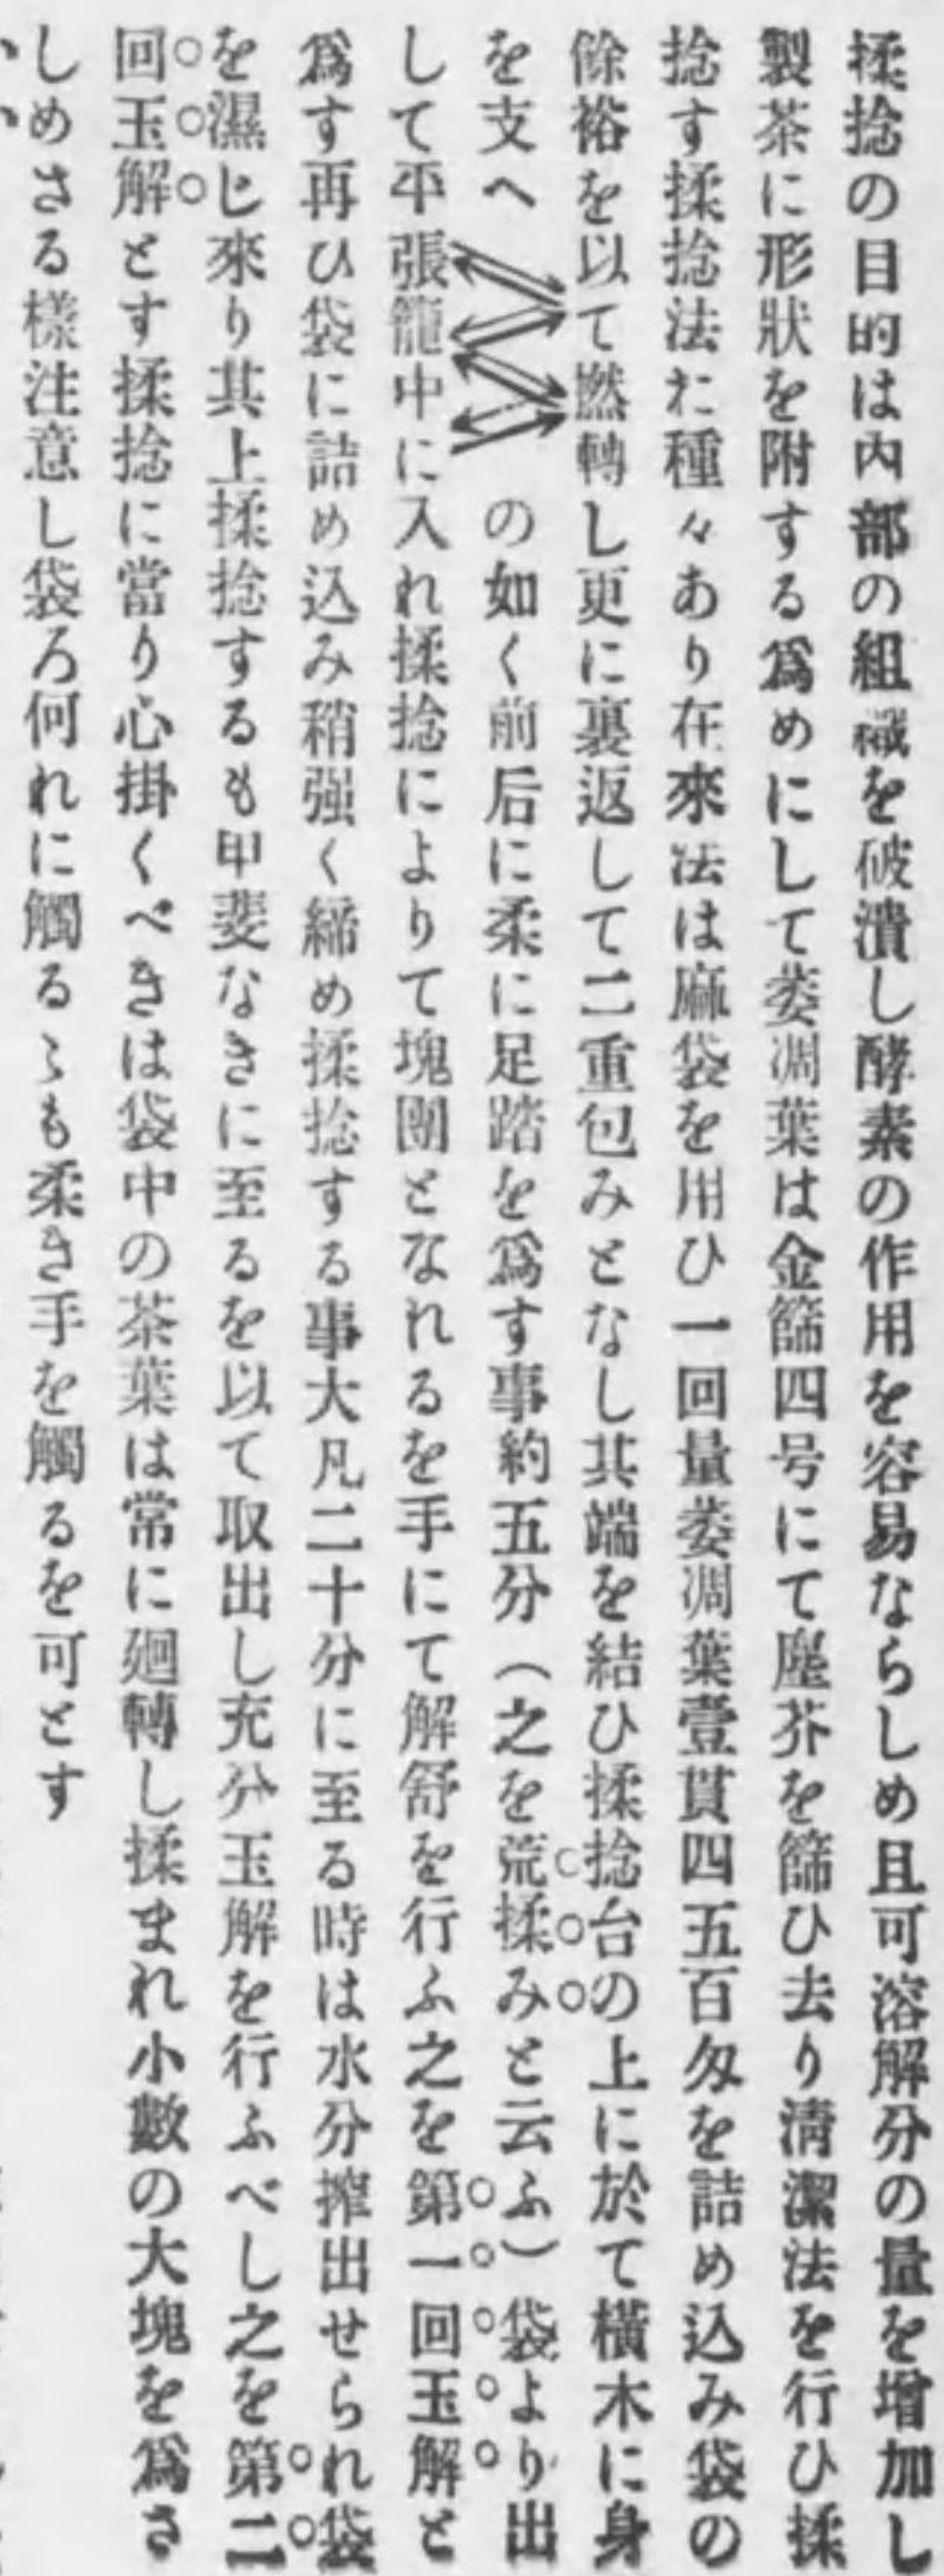 揉捻の目的は內部の組織を破潰し酵素の作用を容易ならしめ且可溶解分の量を增加し
製茶に形狀を附する爲めにして萎凋葉は金篩四号にて塵芥を篩ひ去り淸潔法を行ひ揉
捻す揉捻法に種々あり在來法は麻袋を用ひ一回量萎凋葉壹貫四五百匁を詰め込み袋の
餘裕を以て撚轉し更に裏返して二重包みとなし其端を結ひ揉捻台の上に於て橫木に身
を支へ の如く前后に柔に足踏を爲す事約五分（之を荒揉みと云ふ）袋より出
して平張籠中に入れ揉捻によりて塊團となれるを手にて解舒を行ふ之を第一回玉解と
爲す再ひ袋に詰め込み稍强く締め揉捻する事大凡二十分に至る時は水分搾出せられ袋
を濕し來り其上揉捻するも甲斐なきに至るを以て取出し充分玉解を行ふべし之を第二
回玉解とす揉捻に當り心掛くべきは袋中の茶葉は常に廻轉し揉まれ小數の大塊を爲さ
しめさる樣注意し袋ろ何れに觸るゝも柔き手を觸るを可とす